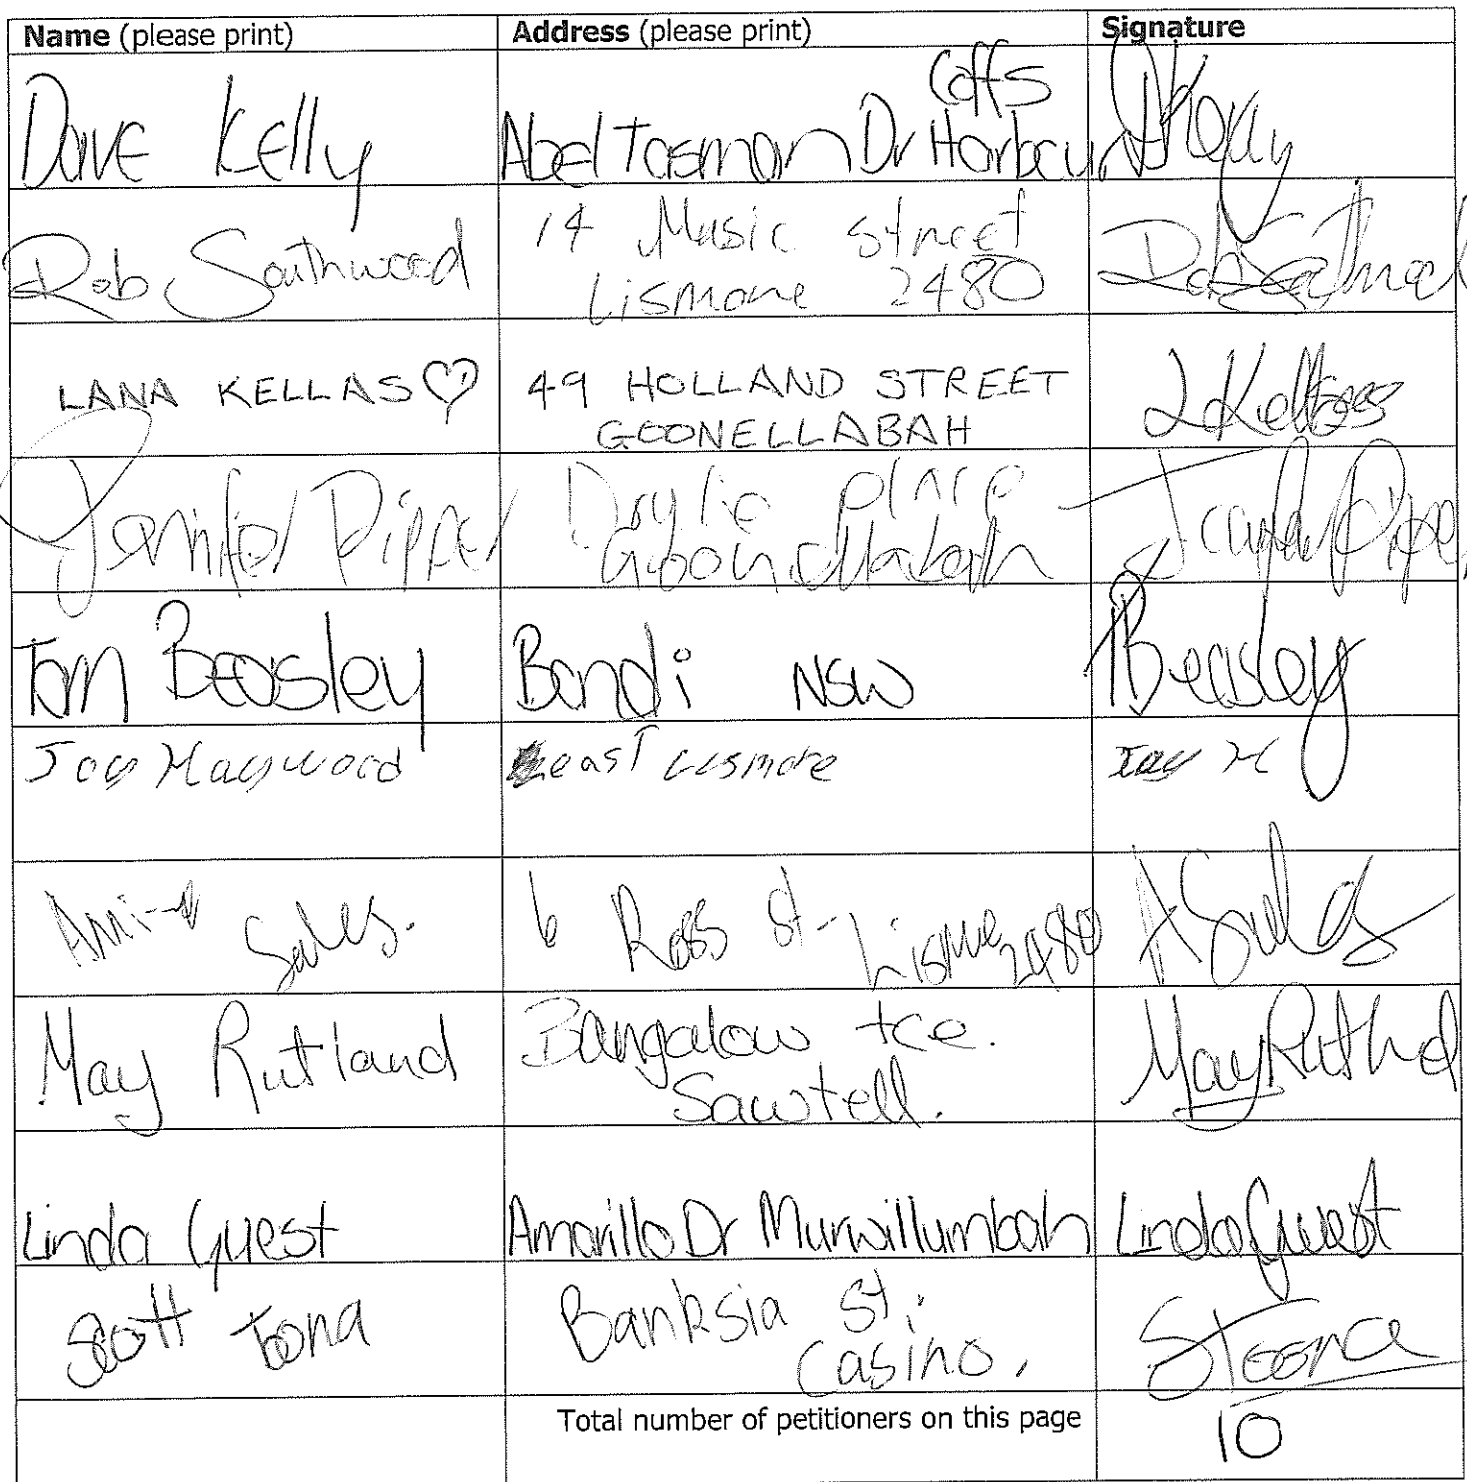 Name (please print) Address (please print) Signature
Dave Kelly Abel Tasman Dr Coffs Harbour DKelly
Rob Southwood 14 Music street
Lismore 2480
LANA KELLAS♡ 49 HOLLAND STREET
GOONELLABAH LKellas
Jennifer Pipper place
Goonellabah
Tom Beasley Bondi NSW TBeasley
Joy Haywood east Lismore Joy H
Sales. 6 Ross St- Lismore 2480 ASales
May Rutland Bangalow tce.
Sawtell. May Rutland
Linda Guest Amarillo Dr Murwillumbah Linda Guest
Scott Toona Banksia St.
Casino. SToona
Total number of petitioners on this page 10